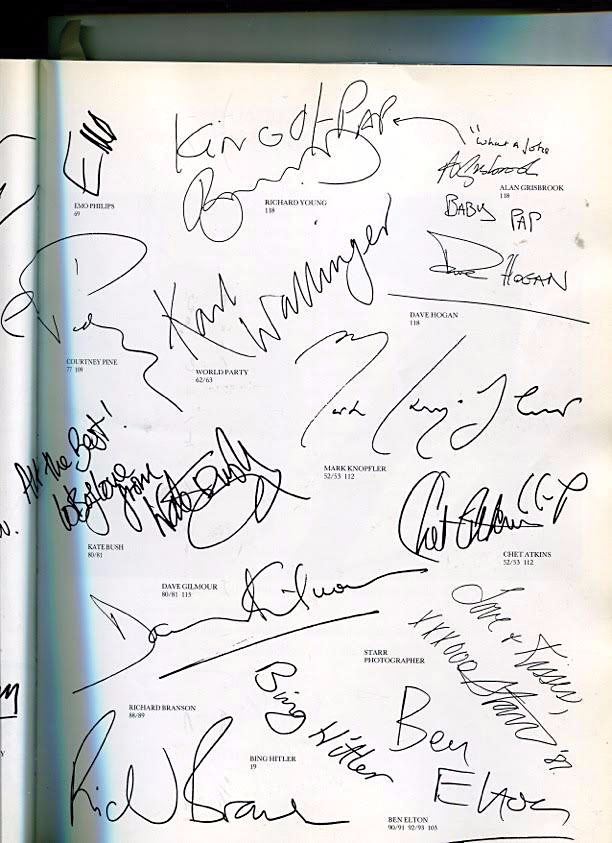 Emo
EMO PHILIPS
69
King Of PAP
RICHARD YOUNG
118
"What a Joke
AGrisbrook
ALAN GRISBROOK
118
BABY PAP
Dave HOGAN
DAVE HOGAN
118
COURTNEY PINE
77 108
Karl Wallinger
WORLD PARTY
62/63
Mark Knopfler
MARK KNOPFLER
52/53 112
All the Best!
lots of love
from
Kate Bush
KATE BUSH
80/81
Chet Atkins CGP
CHET ATKINS
52/53 112
DAVE GILMOUR
80/81 113
David Gilmour
STARR
PHOTOGRAPHER
Love & Kisses,
xxxooo Starr '87
RICHARD BRANSON
88/89
Richard Branson
Bing Hitler
BING HITLER
19
Ben
Elton
BEN ELTON
90/91 92/93 105